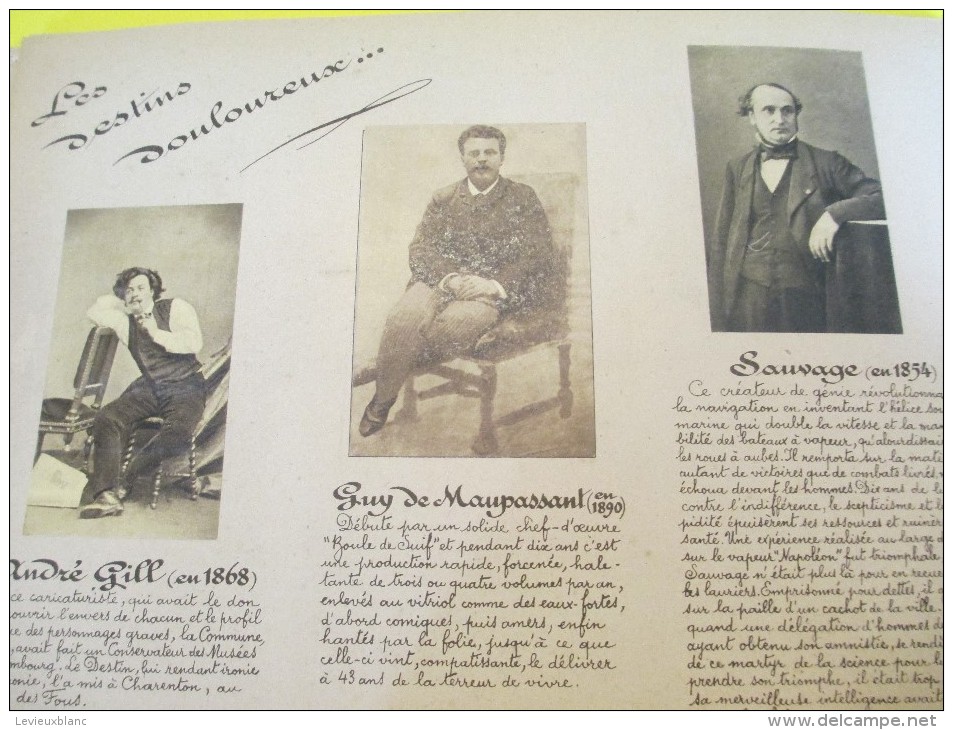 Les
destins
douloureux...
André Gill (en 1868)
ce caricaturiste, qui avait le don
ouvrir l'envers de chacun et le profil
des personnages graves, la Commune,
avait fait un Conservateur des Musées
mbourg. Le Destin, lui rendant ironie
onie, l'a mis à Charenton, au
des Fous.
Guy de Maupassant (en 1890)
Débute par un solide chef-d'œuvre
"Boule de Suif" et pendant dix ans c'est
une production rapide, forcenée, hale-
tante de trois ou quatre volumes par an,
enlevés au vitriol comme des eaux-fortes,
d'abord comiques, puis amers, enfin
hantés par la folie, jusqu'à ce que
celle-ci vint, compatissante, le délivrer
à 43 ans de la terreur de vivre.
Sauvage (en 1854)
Ce créateur de génie révolutionna
la navigation en inventant l'hélice sou
marine qui double la vitesse et la ma
bilité des bateaux à vapeur, qu'alourdissai
les roues à aubes. Il remporta sur la mati
autant de victoires que de combats livrés,
échoua devant les hommes. Dix ans de l
contre l'indifférence, le scepticisme et l
pidité épuisèrent ses ressources et ruinèr
santé. Une expérience réalisée au large d
sur le vapeur "Napoléon" fut triomphale
Sauvage n'était plus là pour en recue
les lauriers. Emprisonné pour dettes, il a
sur la paille d'un cachot de la ville.
quand une délégation d'hommes d
ayant obtenu son amnistie, se rendi
de ce martyr de la science pour l
prendre son triomphe, il était trop
sa merveilleuse intelligence avait
Levieuxblanc
http://www.delcampe.net